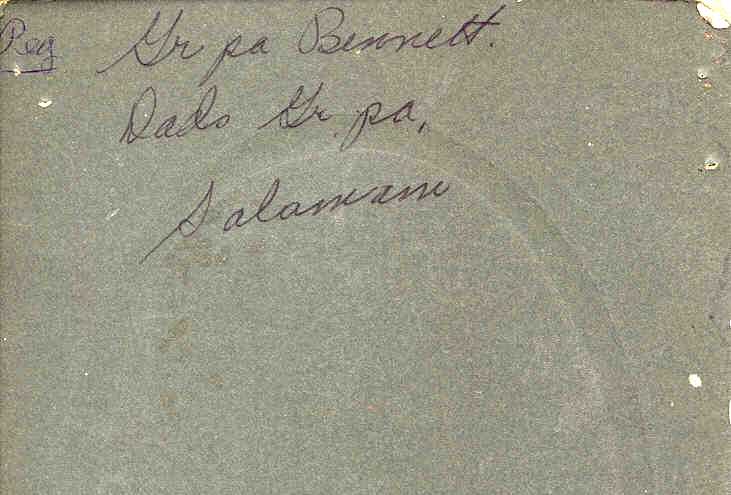 Reg Gr pa Bennett.
Dads Gr. pa,